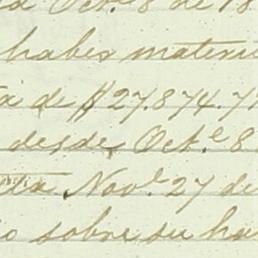 Oct.e 8 de 18
habes materia
de $27.874.7
desde Oct.e 8
da Nov.e 27 de
o sobre su ha